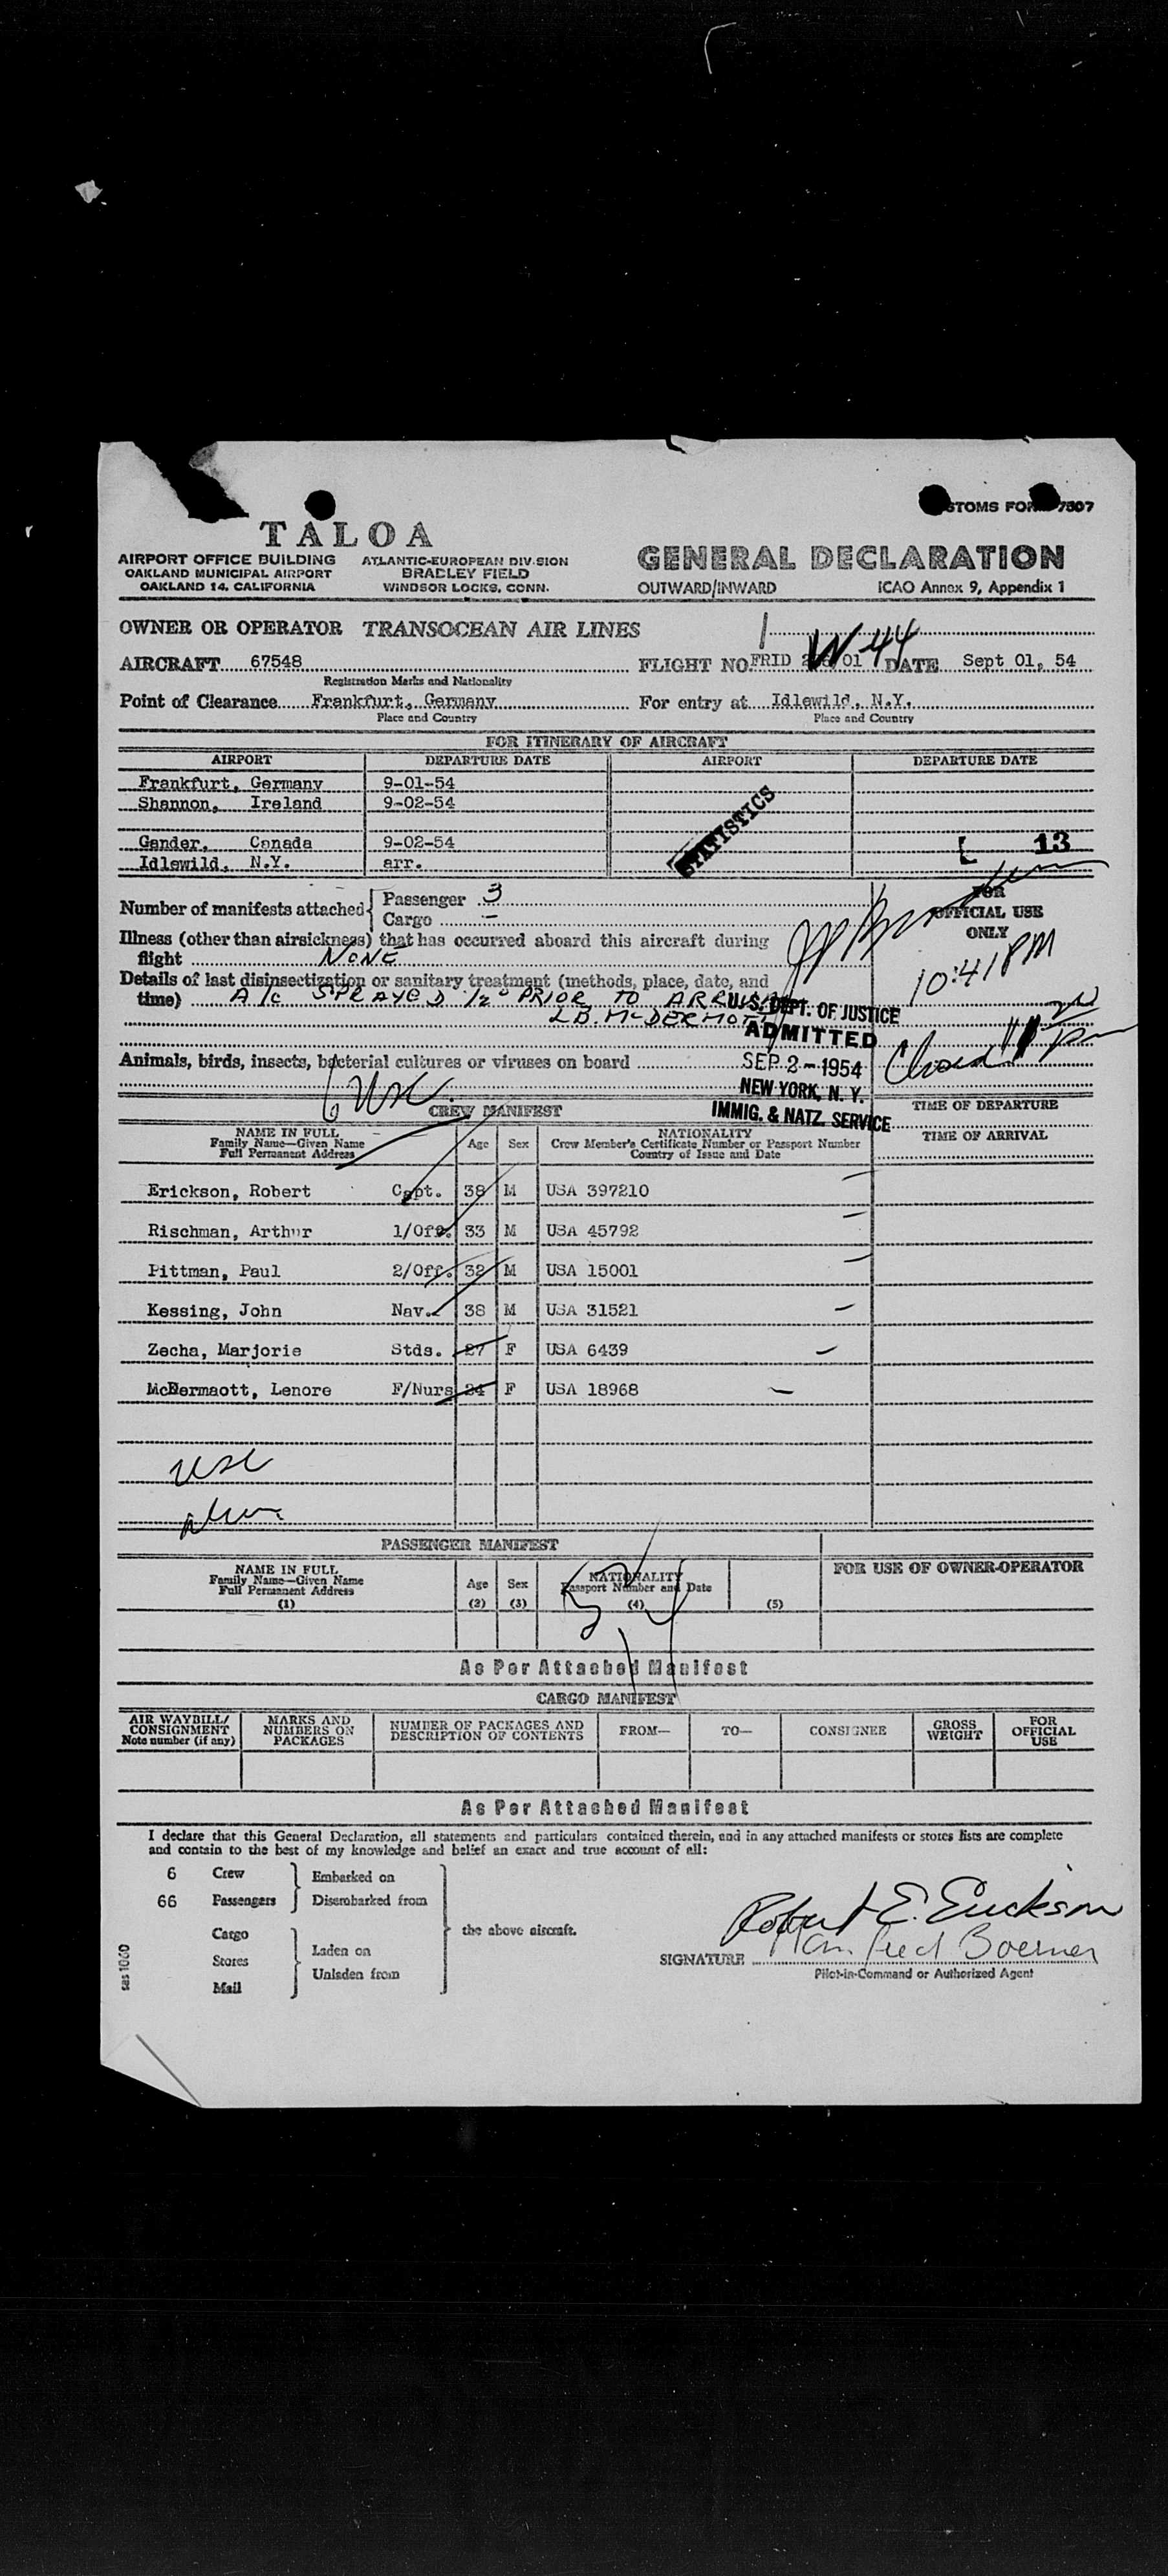 STOMS FOR 7507
TALOA
AIRPORT OFFICE BUILDING
OAKLAND MUNICIPAL AIRPORT
OAKLAND 14, CALIFORNIA
ATLANTIC-EUROPEAN DIVISION
BRADLEY FIELD
WINDSOR LOCKS, CONN.
GENERAL DECLARATION
OUTWARD/INWARD ICAO Annex 9, Appendix 1
OWNER OR OPERATOR TRANSOCEAN AIR LINES
W 44
AIRCRAFT 67548 FLIGHT NO FRID DATE Sept 01, 54
Registration Marks and Nationality
Point of Clearance Frankfurt, Germany For entry at Idlewild, N.Y.
Place and Country Place and Country
FOR ITINERARY OF AIRCRAFT
AIRPORT DEPARTURE DATE AIRPORT DEPARTURE DATE
Frankfurt, Germany 9-01-54
Shannon, Ireland 9-02-54
STATISTICS
Gander, Canada 9-02-54 13
Idlewild, N.Y. arr.
Number of manifests attached Passenger 3
Cargo -
FOR
OFFICIAL USE
ONLY
10:41 PM
Illness (other than airsickness) that has occurred aboard this aircraft during
flight NONE
Details of last disinsectization or sanitary treatment (methods, place, date, and
time) A/c SPRAYED 1/2° PRIOR TO ARRIVAL
L.B. McDERMOTT
U.S. DEPT. OF JUSTICE
ADMITTED
SEP 2 - 1954
NEW YORK, N. Y.
IMMIG. & NATZ. SERVICE
Animals, birds, insects, bacterial cultures or viruses on board
6 USC
CREW MANIFEST
TIME OF DEPARTURE
TIME OF ARRIVAL
NAME IN FULL
Family Name—Given Name
Full Permanent Address
Age Sex
NATIONALITY
Crew Member's Certificate Number or Passport Number
Country of Issue and Date
Erickson, Robert Capt. 38 M USA 397210
Rischman, Arthur 1/Off. 33 M USA 45792
Pittman, Paul 2/Off. 32 M USA 15001
Kessing, John Nav. 38 M USA 31521
Zecha, Marjorie Stds. 27 F USA 6439
McDermaott, Lenore F/Nurs 24 F USA 18968
USC
PASSENGER MANIFEST
NAME IN FULL
Family Name—Given Name
Full Permanent Address
(1)
Age
(2)
Sex
(3)
NATIONALITY
Passport Number and Date
(4)
(5)
FOR USE OF OWNER-OPERATOR
As Per Attached Manifest
CARGO MANIFEST
AIR WAYBILL/
CONSIGNMENT
Note number (if any)
MARKS AND
NUMBERS ON
PACKAGES
NUMBER OF PACKAGES AND
DESCRIPTION OF CONTENTS
FROM—
TO—
CONSIGNEE
GROSS
WEIGHT
FOR
OFFICIAL
USE
As Per Attached Manifest
I declare that this General Declaration, all statements and particulars contained therein, and in any attached manifests or stores lists are complete
and contain to the best of my knowledge and belief an exact and true account of all:
6 Crew Embarked on
66 Passengers Disembarked from
the above aircraft.
Cargo
Stores
Mail
Laden on
Unladen from
Robert E. Erickson
Manfred Boerner
SIGNATURE
Pilot-in-Command or Authorized Agent
sas 1060